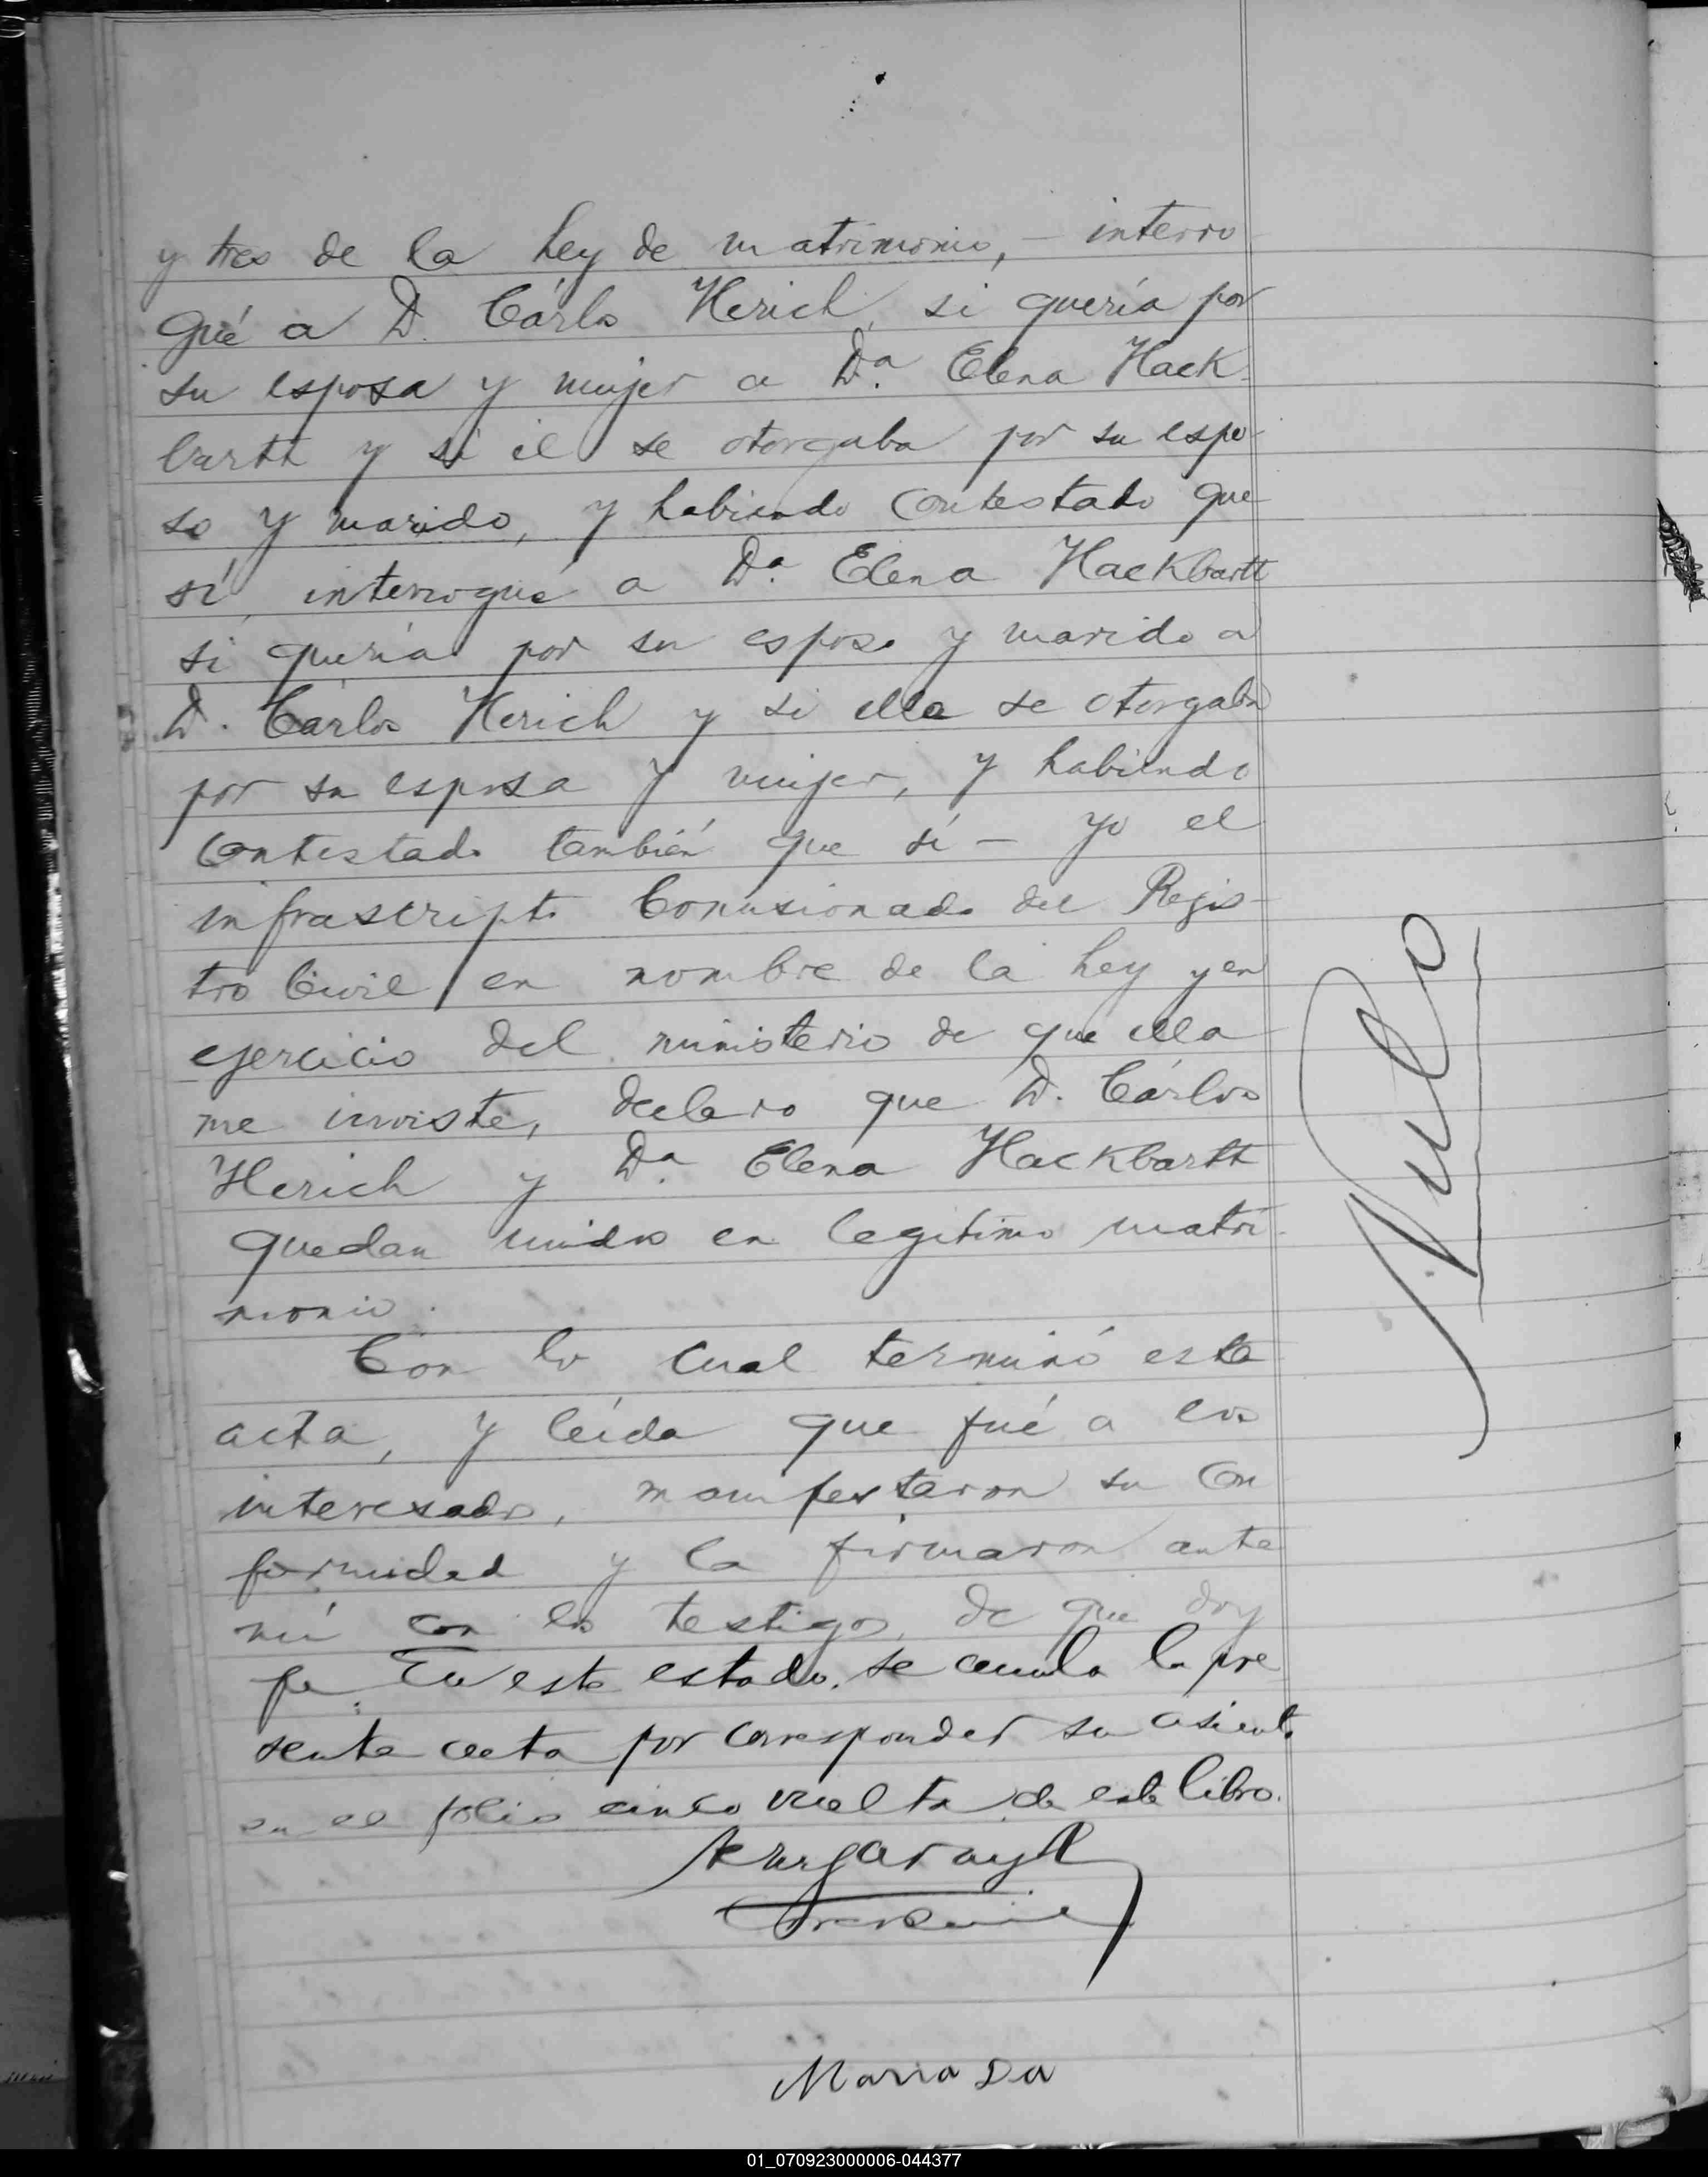 y tres de la Ley de matrimonio, — interro
gué a D. Cárlos Herich, si quería por
su esposa y mujer a Dª. Elena Hack
bartt y si él se otorgaba por su espo-
so y marido, y habiendo contestado que
sí, interrogué a Dª. Elena Hackbartt
si quería por su esposo y marido a
D. Cárlos Herich y si ella se otorgaba
por su esposa y mujer, y habiendo
contestado también que sí — yo el
infrascripto Comisionado del Regis-
tro Civil en nombre de la Ley y en
ejercicio del ministerio de que ella
me inviste, declaro que D. Cárlos
Herich y Dª. Elena Hackbartt
quedan unidos en legítimo matri-
monio.
Con lo cual terminó esta
acta, y leída que fué a los
interesados, manifestaron su con
formidad y la firmaron ante
mí con los testigos, de que doy
fe. En este estado, se anula la pre
sente acta por corresponder su asiento
en el folio cinco vuelta de este libro.
Maria Da
Nulo
01_070923000006-044377